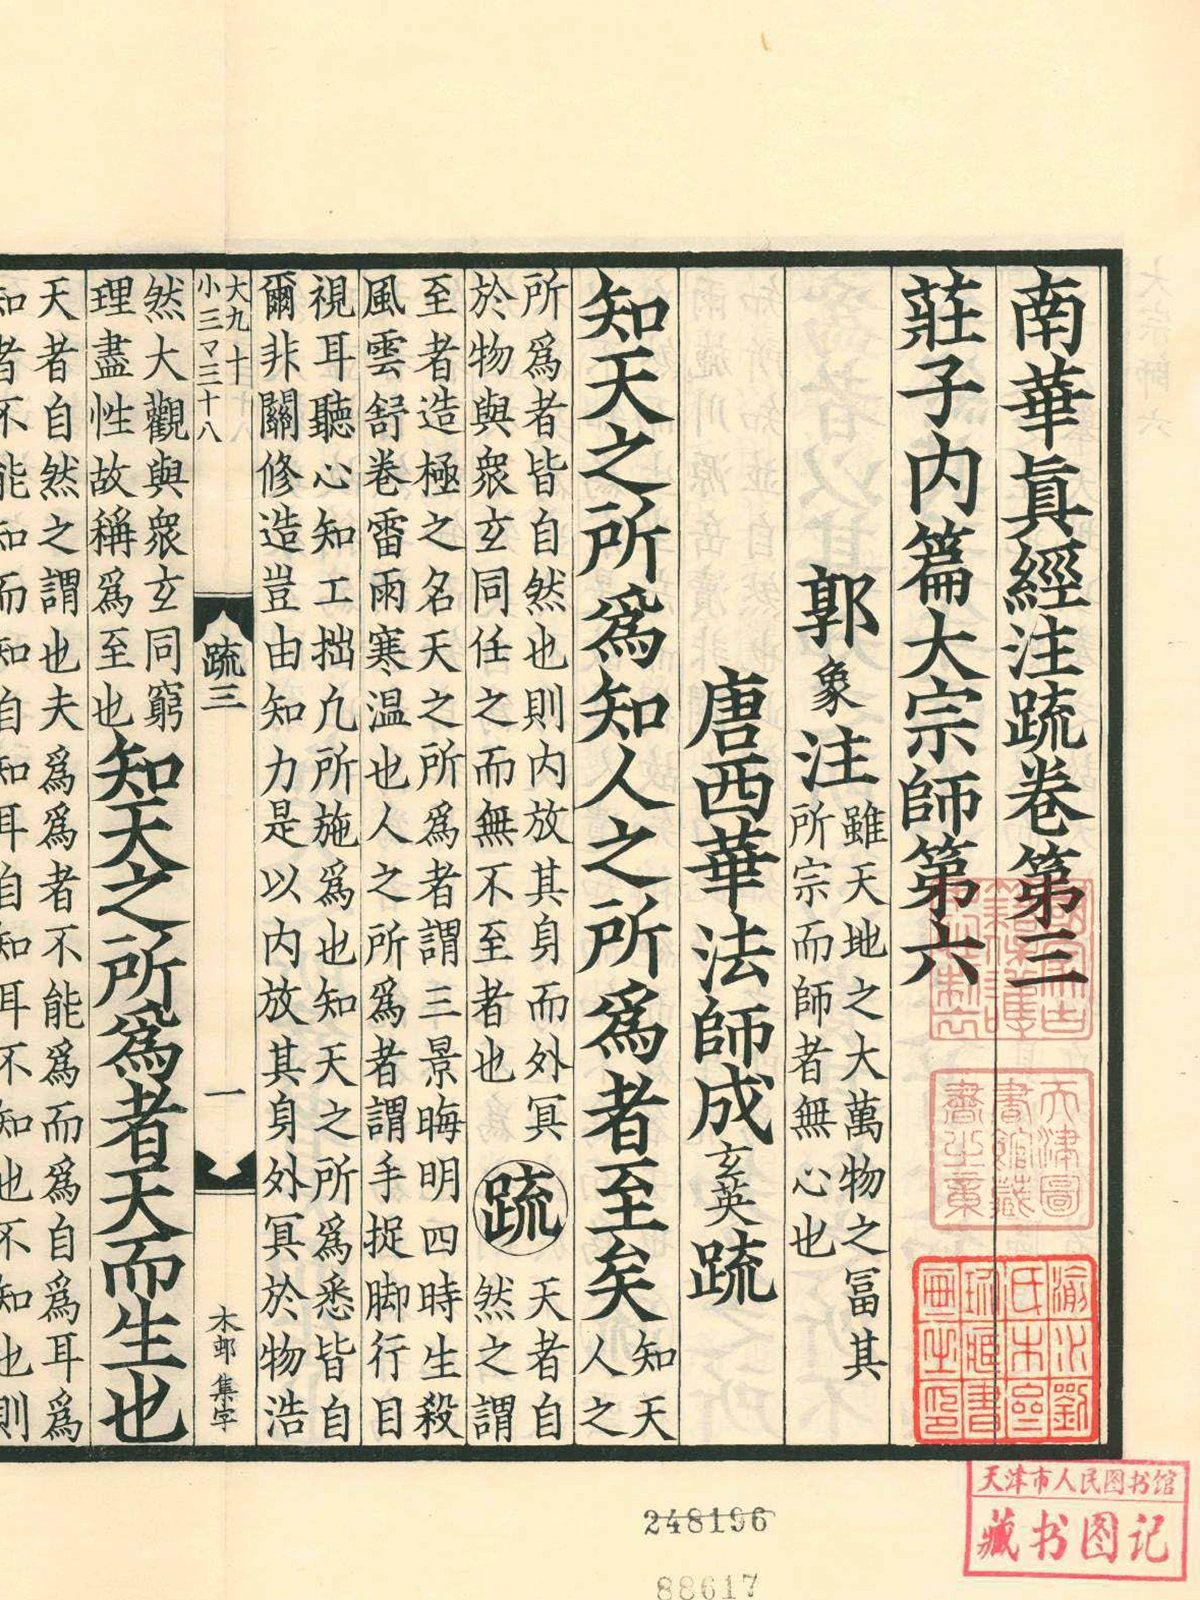 南華眞經注疏卷第三
莊子内篇大宗師第六
郭象注
雖天地之大萬物之冨其
所宗而師者無心也
唐西華法師成玄英疏
知天之所爲知人之所爲者至矣
知天
人之
所爲者皆自然也則内放其身而外冥
於物與衆玄同任之而無不至者也
疏
天者自
然之謂
至者造極之名天之所爲者謂三景晦明四時生殺
風雲舒卷雷雨寒温也人之所爲者謂手捉脚行目
視耳聽心知工拙凢所施爲也知天之所爲悉皆自
爾非關修造豈由知力是以内放其身外冥於物浩
大九十
小三マ三十八
疏三
一
木郎 集字
然大觀與衆玄同窮
理盡性故稱爲至也
知天之所爲者天而生也
天者自然之謂也夫爲爲者不能爲而爲自爲耳爲
知者不能知而知自知耳自知耳不知也不知也則
天津圖
書館藏
書之章
渝水劉
氏木㕘
天津市人民图书馆
藏书图记
248196
88617